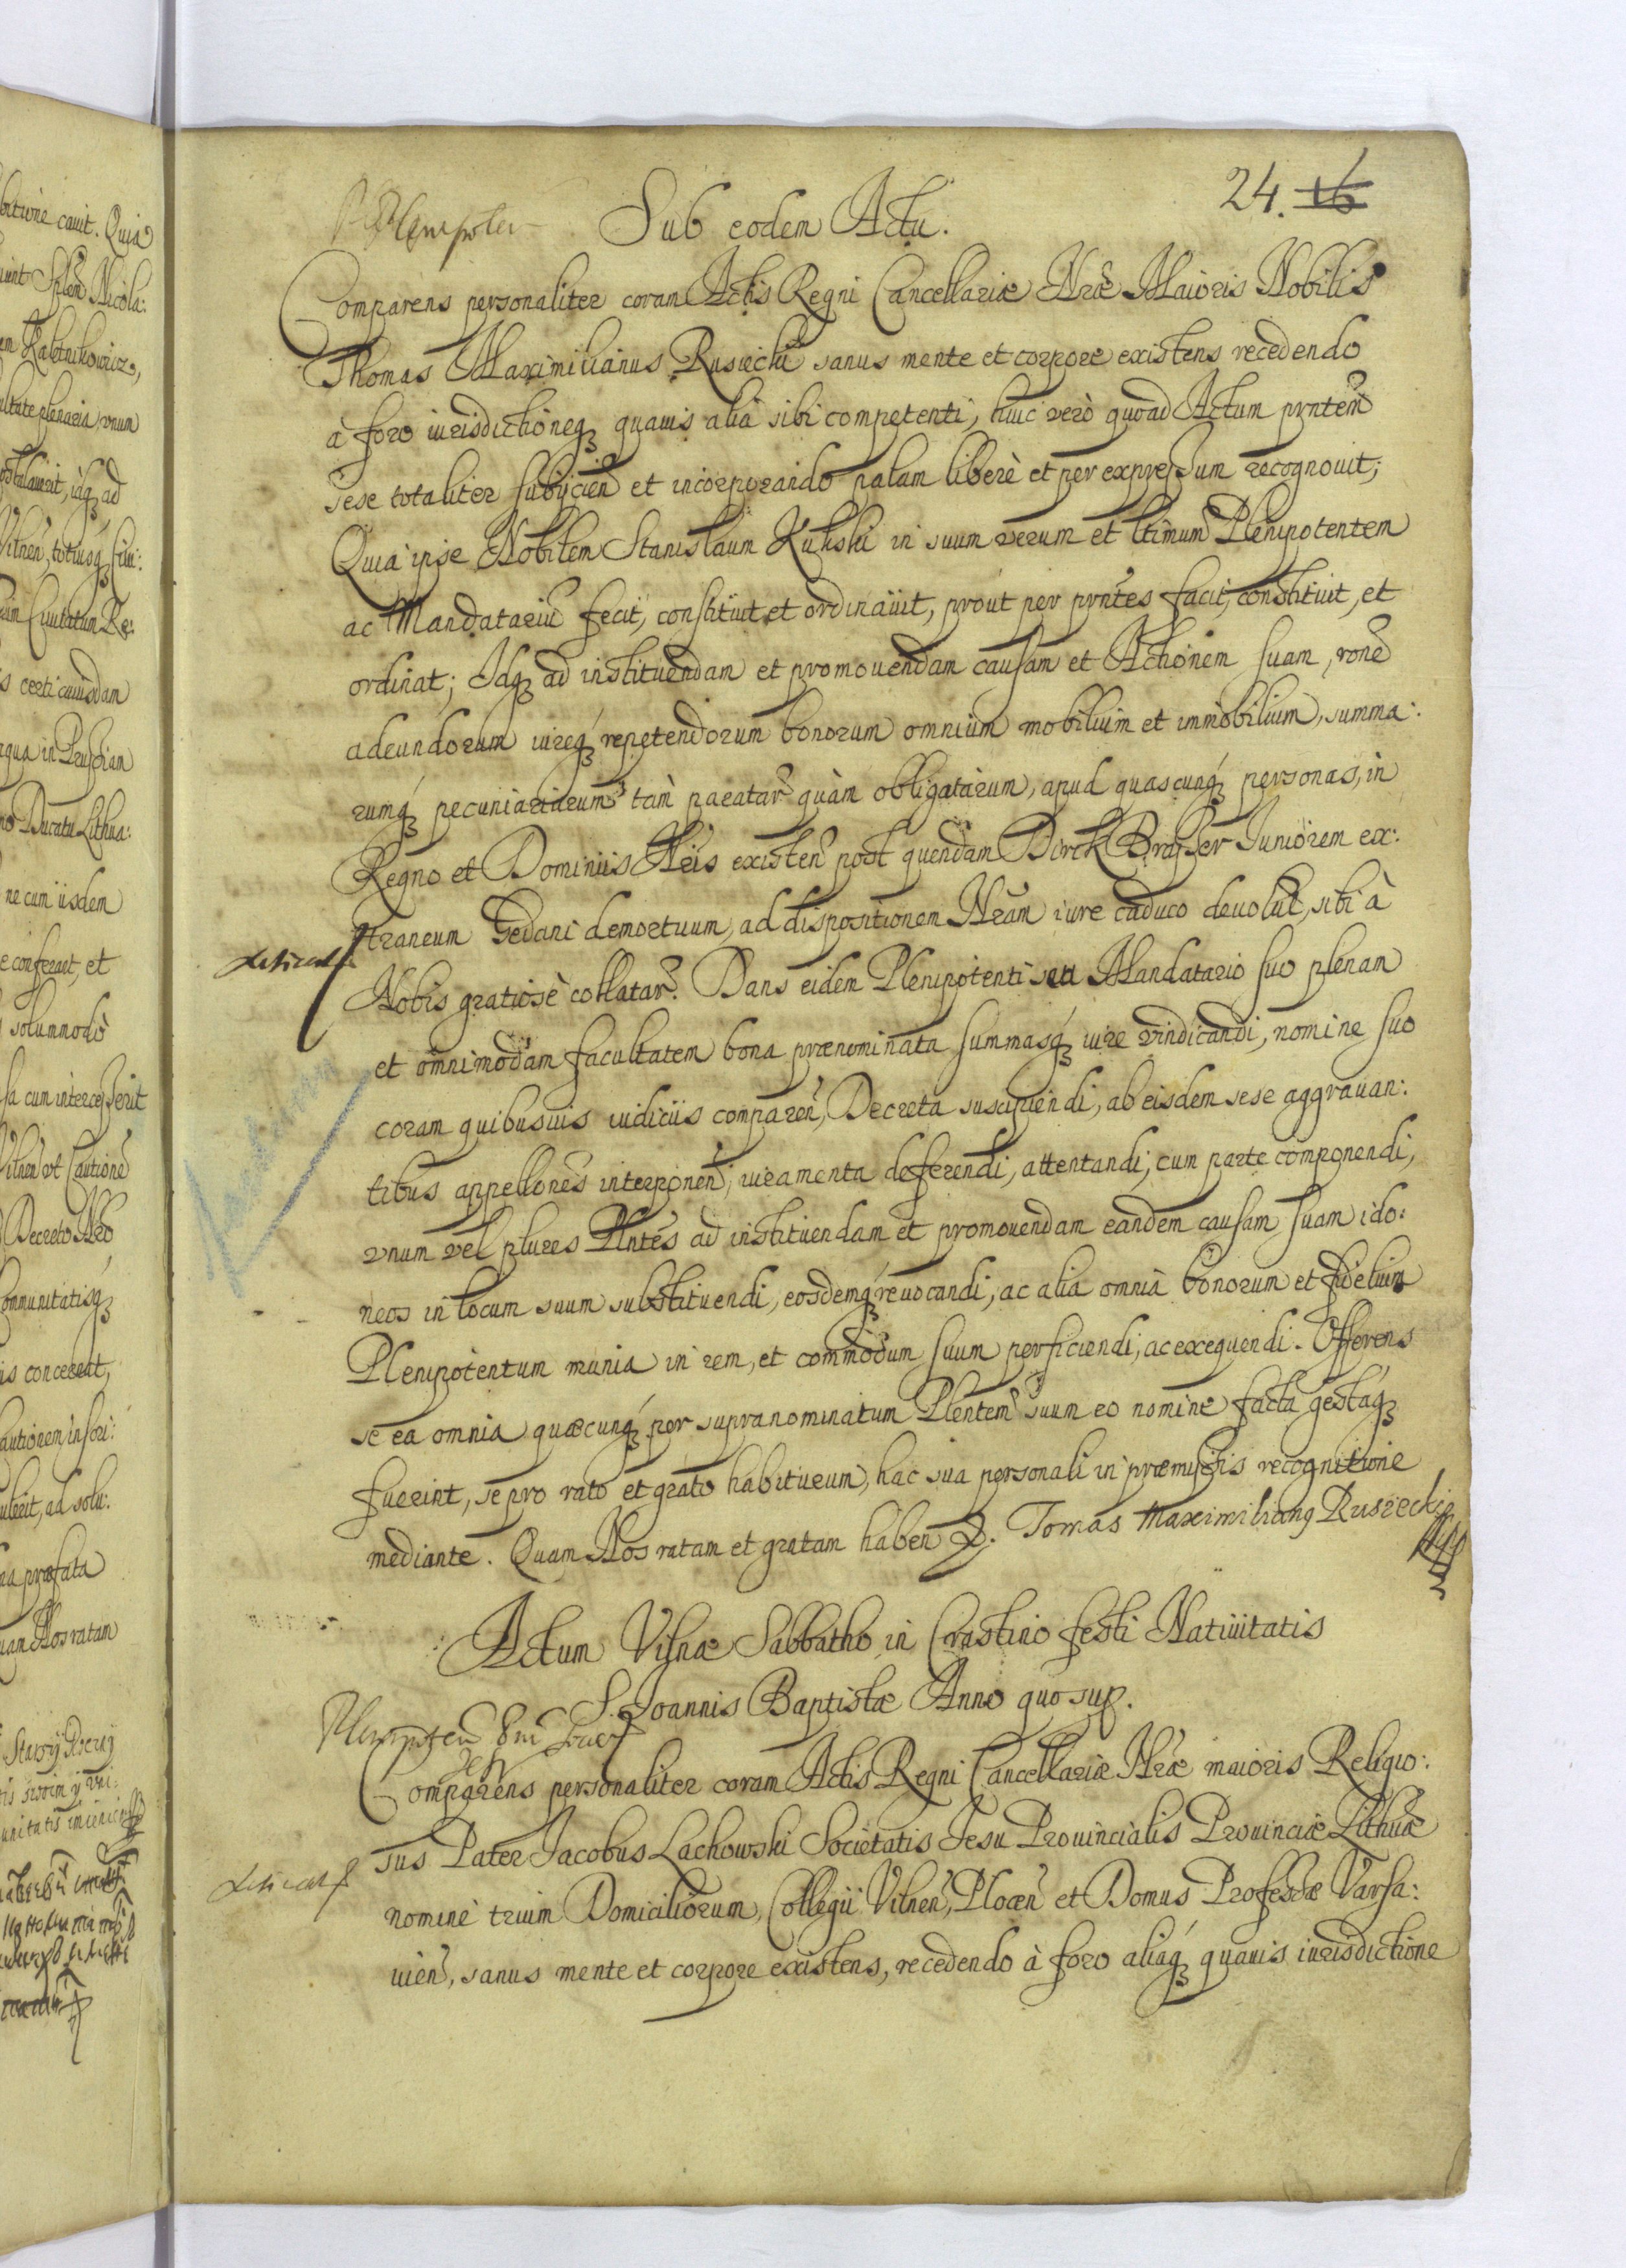 24. 16
Plenipoten Sub eodem Actu.
Comparens personaliter coram Actis Regni Cancellariæ Nræ Maioris Nobilis
Thomas Maximilianus Rusiecki sanus mente et corpore existens recedendo
à foro iurisdictioneq quauis alia sibi competenti, huic verò quoad Actum pnten
sese totaliter subijcien et incorporando palam liberè et per expressum recognouit;
Quia ipse Nobilem Stanislaum Kuliski in suum verum et ltimum Plenipotentem
ac Mandatariu fecit, constituit et ordinauit, prout per pntes facit, constituit, et
ordinat; Idq ad instituendam et promouendam causam et Actionem suam, rone
adeundorum iureq repetendorum bonorum omnium mobilium et immobilium, summa:
rumq pecuniariarum tàm paratar quàm obligatarum, apud quascunq personas, in
Regno et Dominiis Nris existen post quendam Dirck Brasser Juniorem ex:
traneum Gedani demortuum, ad dispositionem Nram iure caduco deuolut, sibi à
Nobis gratiosè collatar. Dans eidem Plenipotenti seu Mandatario suo plenam
et omnimodam facultatem bona prænominata summasq iure vindicandi, nomine suo
coram quibusuis iudiciis comparen, Decreta suscipiendi, ab eisdem sese aggrauan:
tibus appellones interponen, iuramenta deferendi, attentandi, cum parte componendi,
vnum vel plures Plntes ad instituendam et promouendam eandem causam suam ido:
neos in locum suum substituendi, eosdemq reuocandi, ac alia omnia bonorum et fidelium
Plenipotentum munia in rem, et commodum suum perficiendi, ac exequendi. Offerens
se ea omnia quæcunq per supranominatum Plentem suum eo nomine facta gestaq
fuerint, se pro rato et grato habiturum, hac sua personali in præmissis recognitione
mediante. Quam Nos ratam et gratam haben. Tomas Maximilianq Rusiecki
Actum Vilnæ Sabbatho in Crastino festi Natiuitatis
S. Joannis Baptistæ Anno quo sup.
Comparens personaliter coram Actis Regni Cancellariæ Nræ maioris Religio:
sus Pater Jacobus Lachowski Societatis Jesu Prouincialis Prouinciæ Lithuæ
nomine trium Domiciliorum, Collegii Vilnen, Plocen et Domus Professæ Varsa:
uien, sanus mente et corpore existens, recedendo à foro aliaq quauis iurisdictione